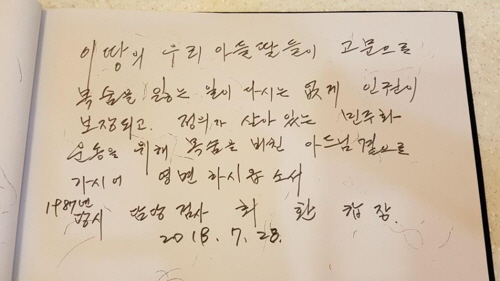 이 땅의 우리 아들딸들이 고문으로
목숨을 잃는 일이 다시는 없게 인권이
보장되고. 정의가 살아 있는 민주화
운동을 위해 목숨을 바친 아드님 곁으로
가시어 영면 하시옵소서
1987년
당시 담당검사 최 환
2018. 7. 28.